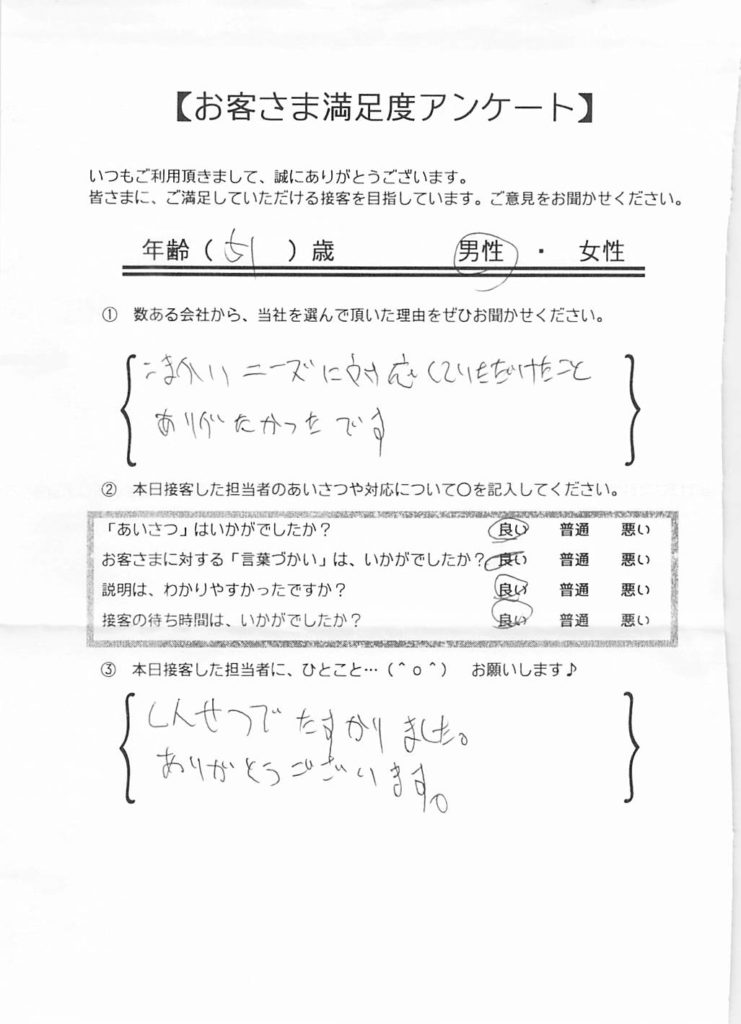 【お客さま満足度アンケート】
いつもご利用頂きまして、誠にありがとうございます。
皆さまに、ご満足していただける接客を目指しています。ご意見をお聞かせください。
年齢（51）歳　男性・女性
① 数ある会社から、当社を選んで頂いた理由をぜひお聞かせください。
こまかいニーズに対応していただけたこと
ありがたかったです
② 本日接客した担当者のあいさつや対応について〇を記入してください。
「あいさつ」はいかがでしたか？ 良い 普通 悪い
お客さまに対する「言葉づかい」は、いかがでしたか？ 良い 普通 悪い
説明は、わかりやすかったですか？ 良い 普通 悪い
接客の待ち時間は、いかがでしたか？ 良い 普通 悪い
③ 本日接客した担当者に、ひとこと…（＾o＾） お願いします♪
しんせつでたすかりました。
ありがとうございます。